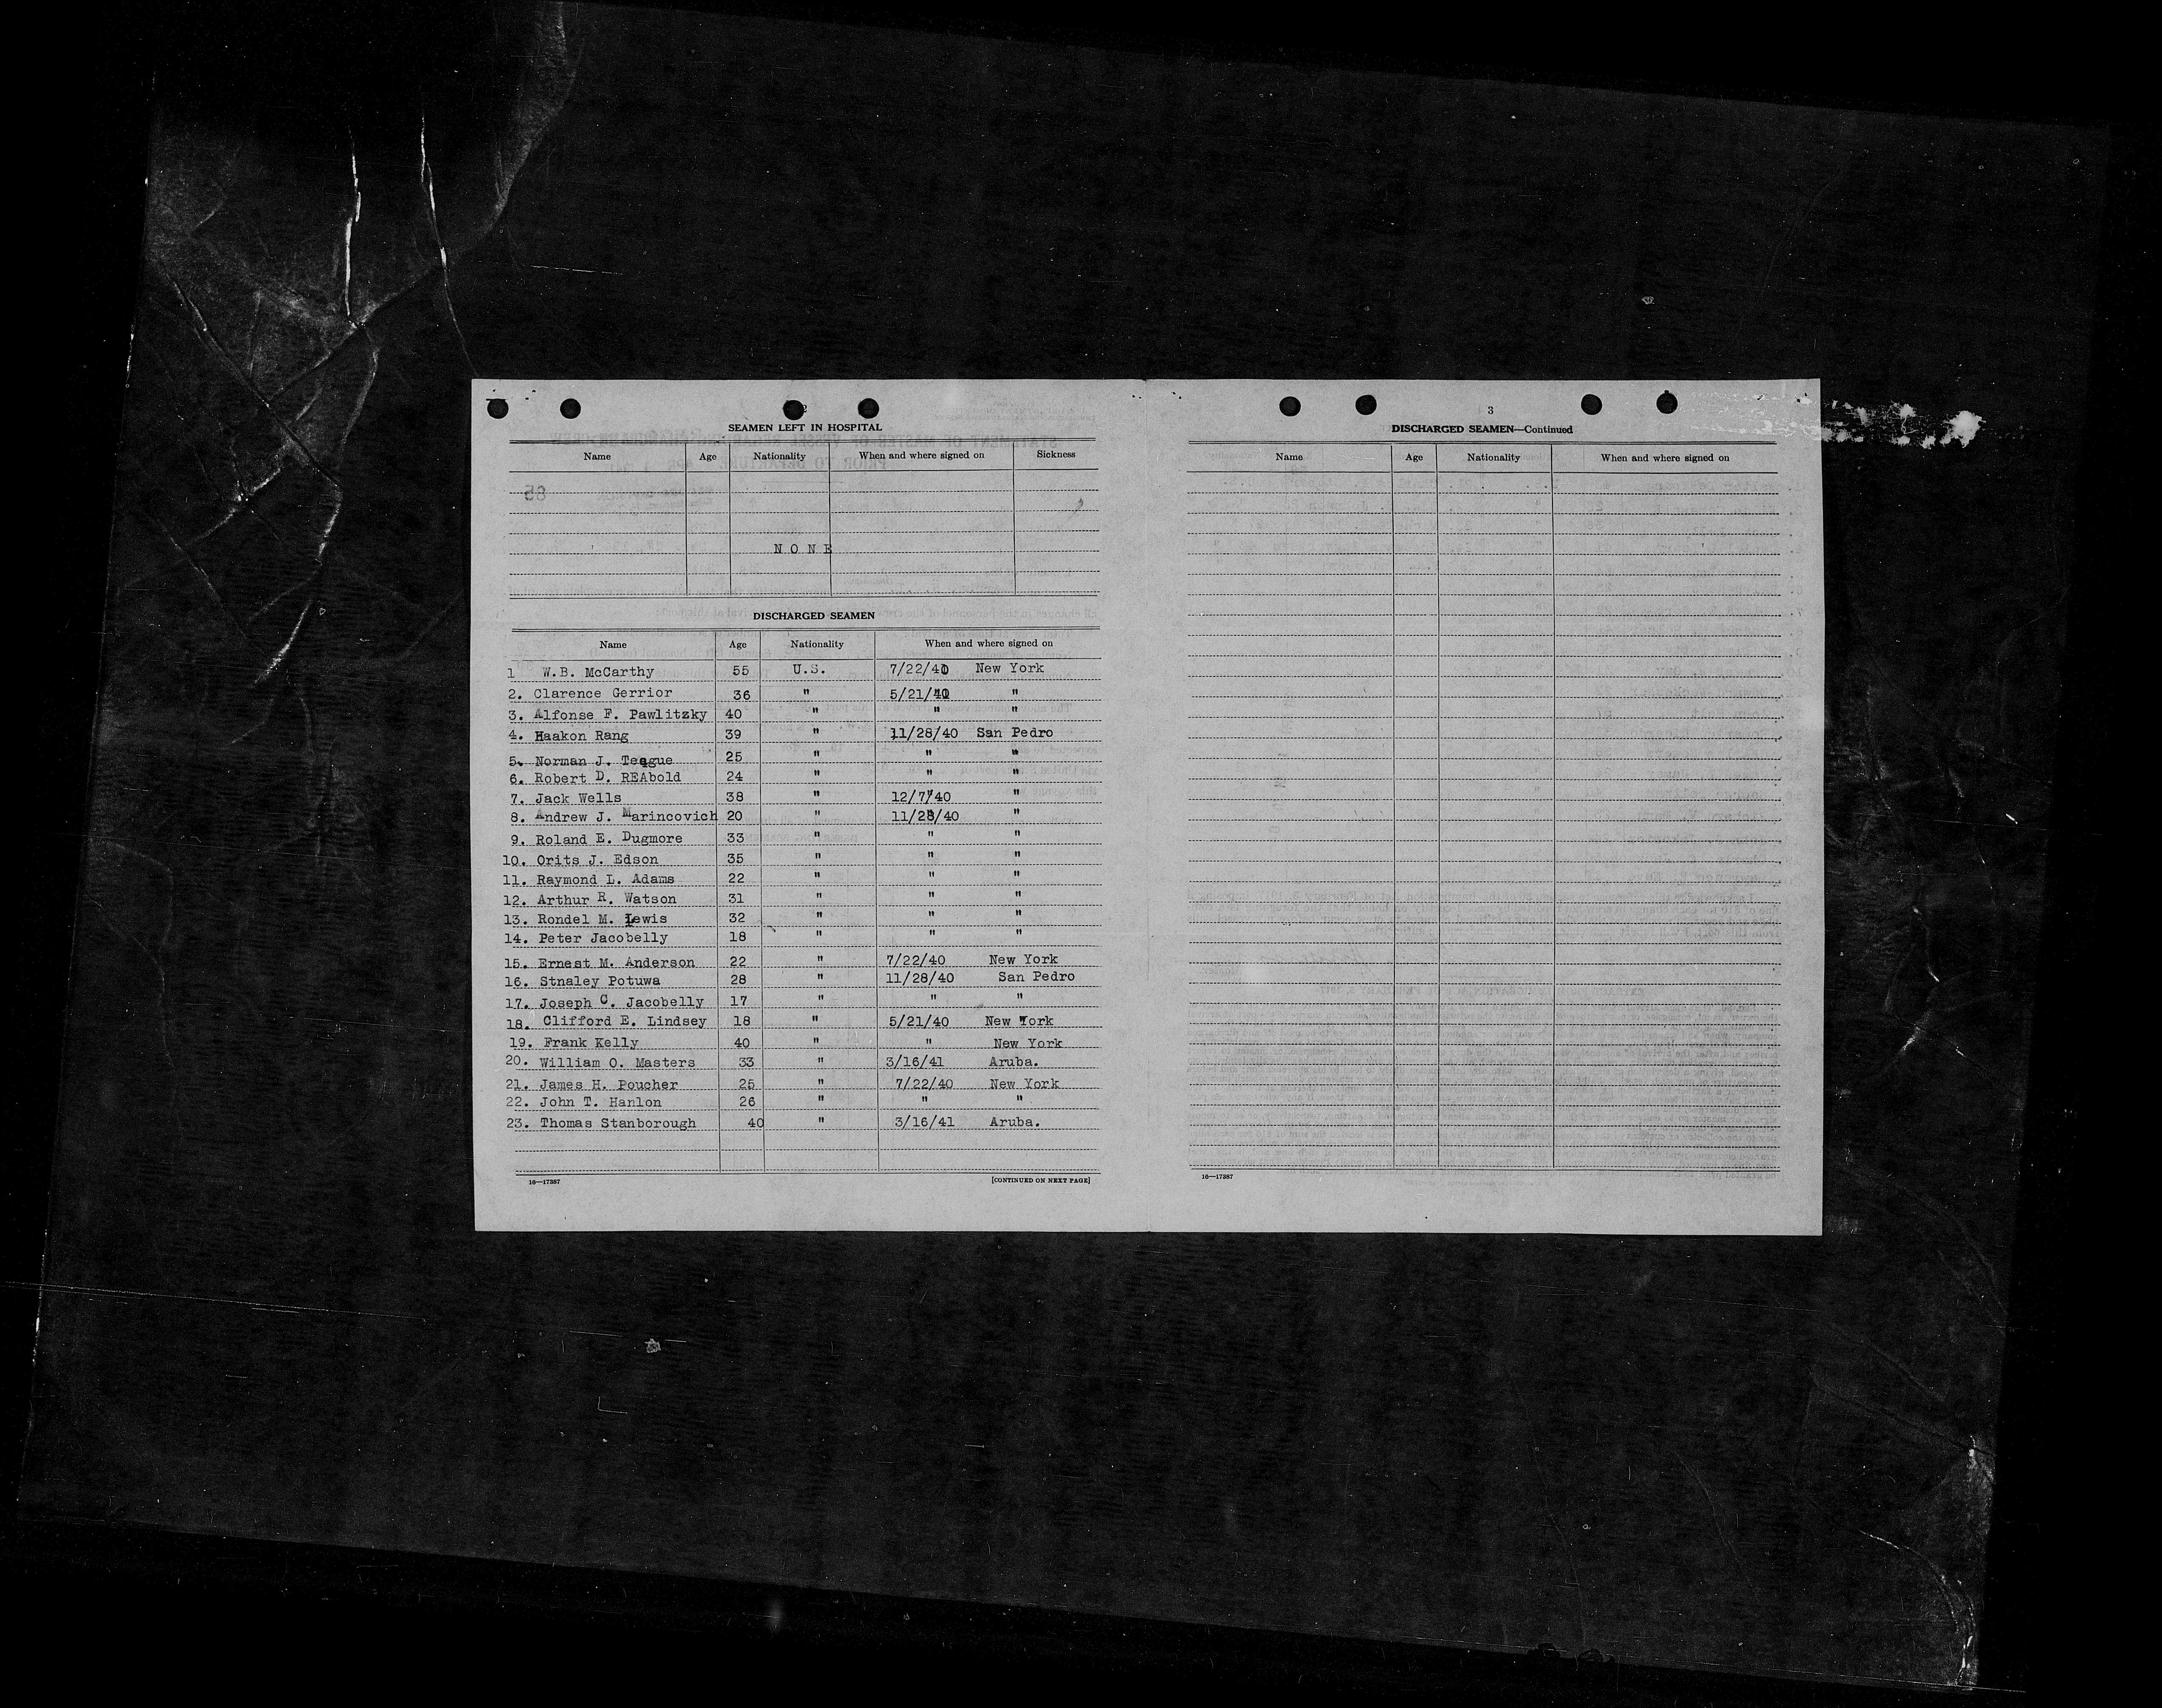 2
SEAMEN LEFT IN HOSPITAL
Name Age Nationality When and where signed on Sickness
NONE
DISCHARGED SEAMEN
Name Age Nationality When and where signed on
1 W.B. McCarthy 55 U.S. 7/22/40 New York
2. Clarence Gerrior 36 " 5/21/40 "
3. Alfonse F. Pawlitzky 40 " " "
4. Haakon Rang 39 " 11/28/40 San Pedro
5. Norman J. Teague 25 " " "
6. Robert D. REAbold 24 " " "
7. Jack Wells 38 " 12/7/40 "
8. Andrew J. Marincovich 20 " 11/28/40 "
9. Roland E. Dugmore 33 " " "
10. Orits J. Edson 35 " " "
11. Raymond L. Adams 22 " " "
12. Arthur R. Watson 31 " " "
13. Rondel M. Lewis 32 " " "
14. Peter Jacobelly 18 " " "
15. Ernest M. Anderson 22 " 7/22/40 New York
16. Stnaley Potuwa 28 " 11/28/40 San Pedro
17. Joseph C. Jacobelly 17 " " "
18. Clifford E. Lindsey 18 " 5/21/40 New York
19. Frank Kelly 40 " " New York
20. William O. Masters 33 " 3/16/41 Aruba.
21. James H. Poucher 25 " 7/22/40 New York
22. John T. Hanlon 26 " " "
23. Thomas Stanborough 40 " 3/16/41 Aruba.
16—17387 [CONTINUED ON NEXT PAGE]
3
DISCHARGED SEAMEN—Continued
Name Age Nationality When and where signed on
16—17387